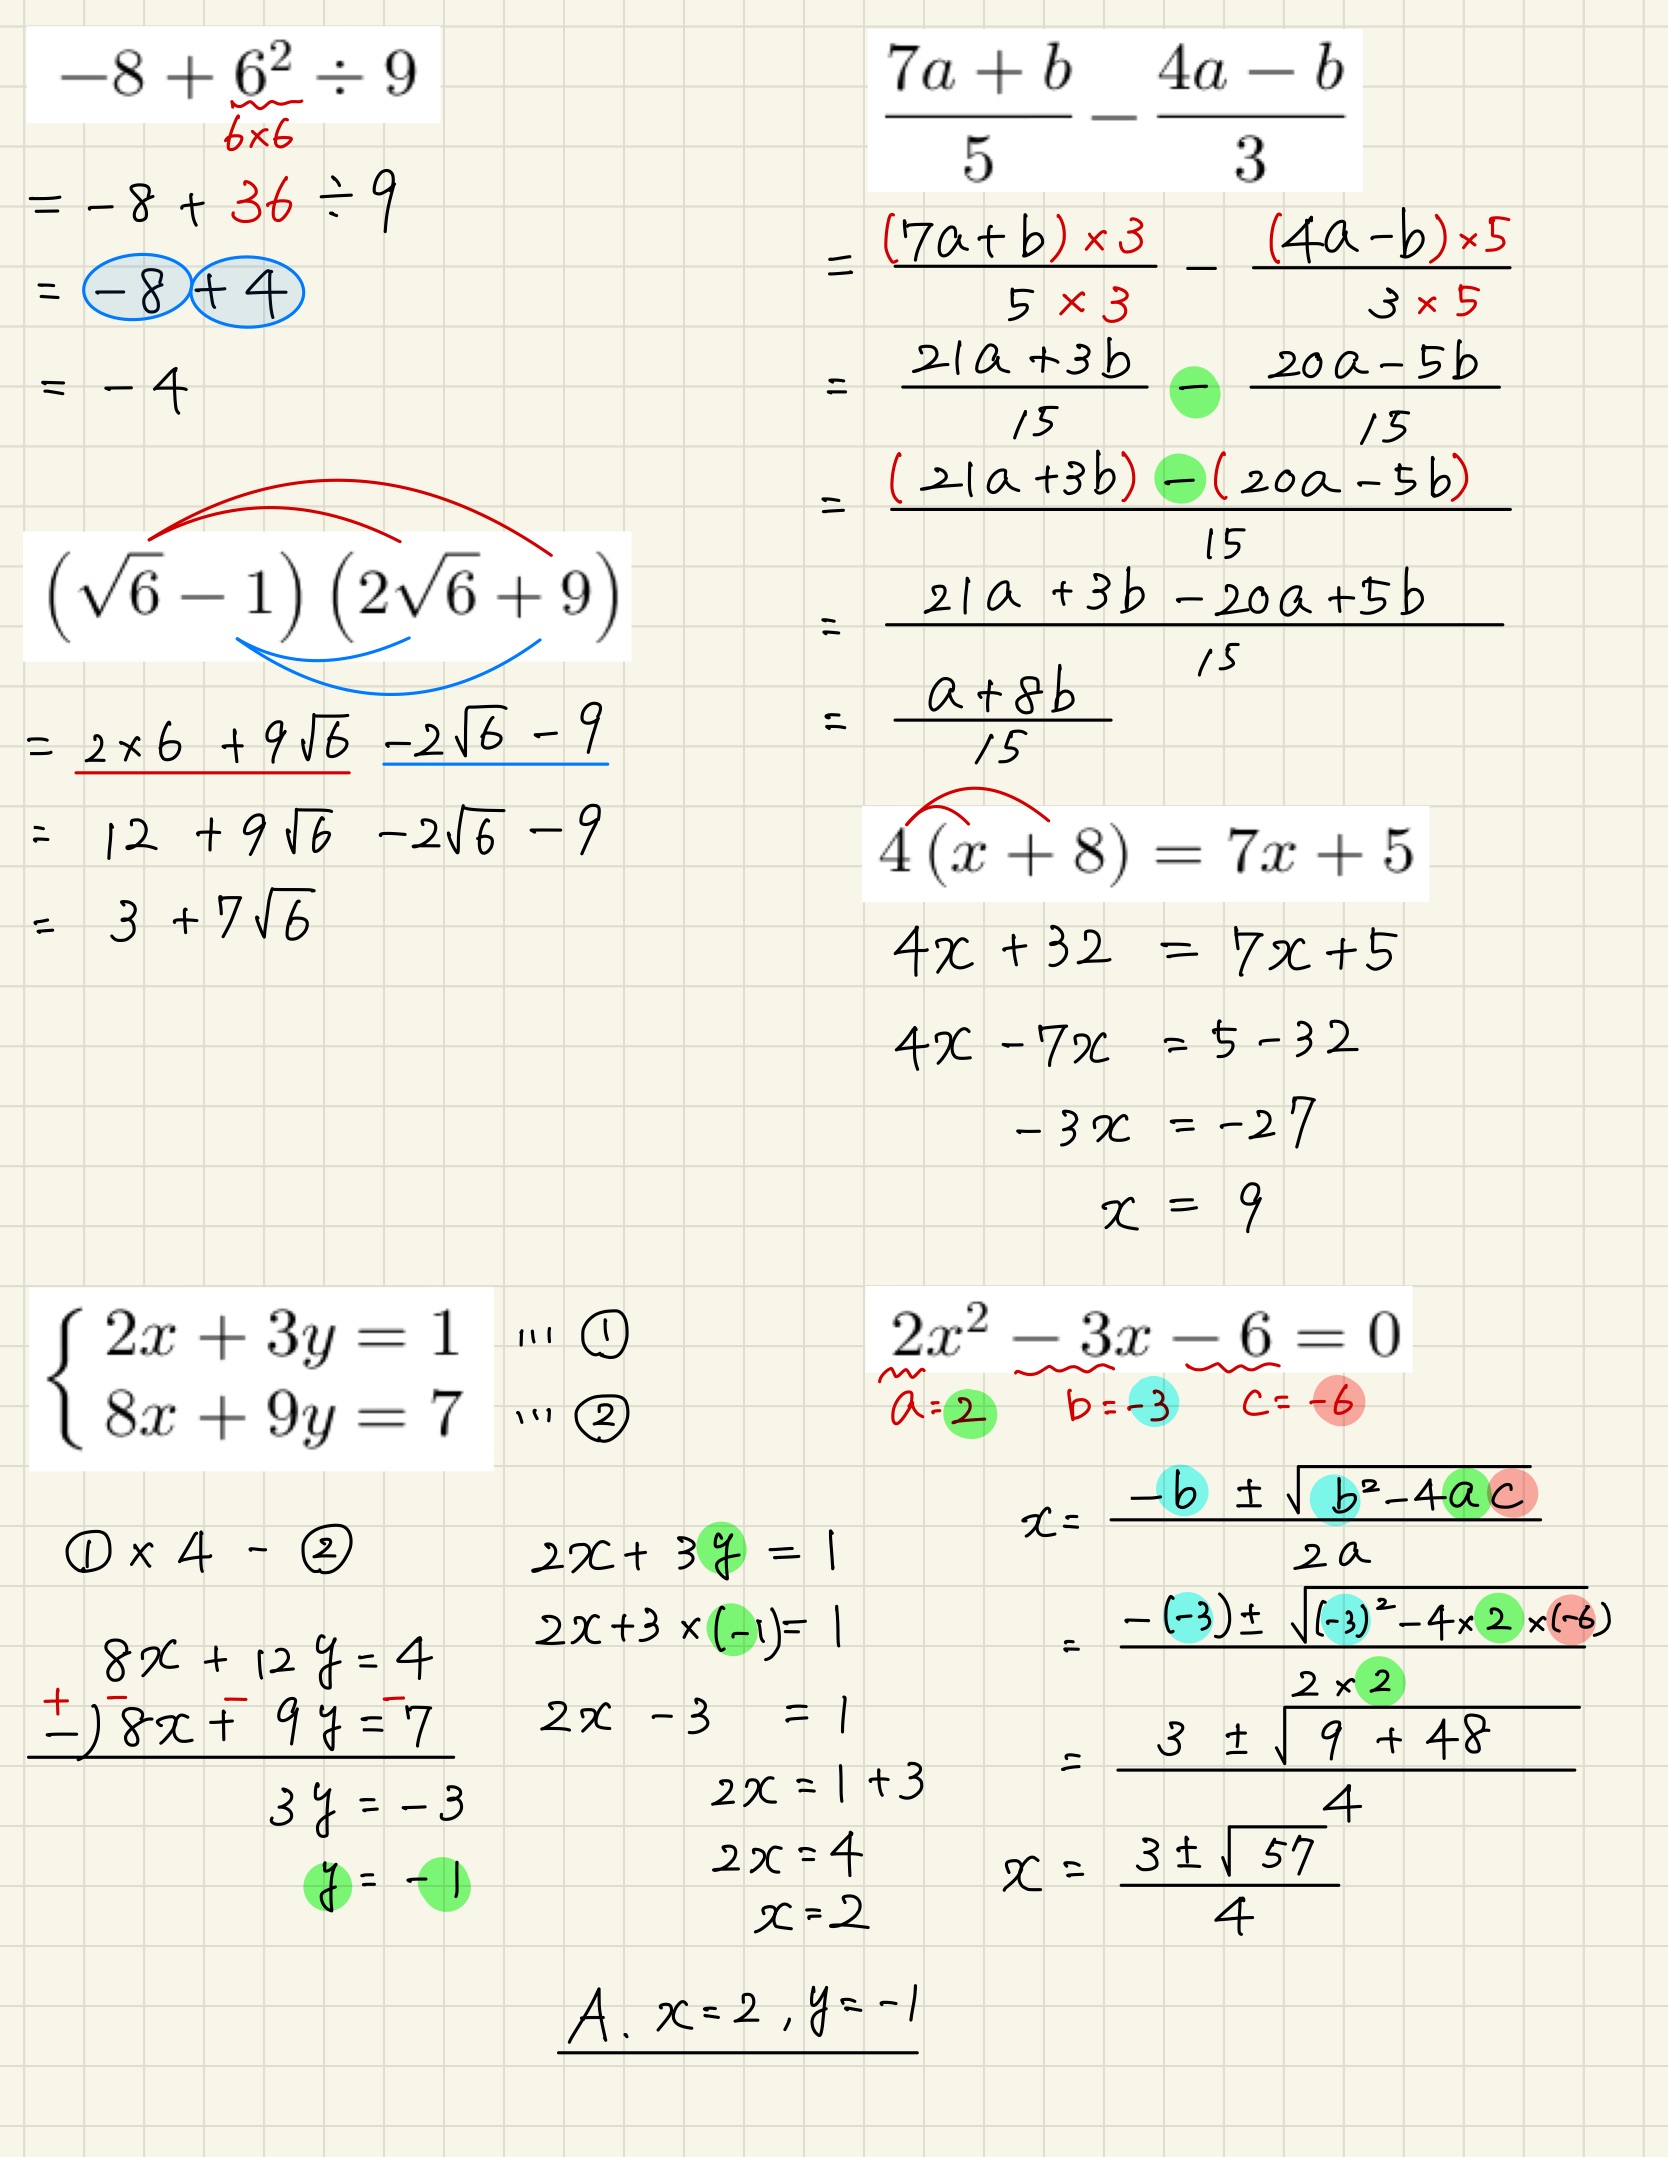 −8 + 6² ÷ 9
6×6
= −8 + 36 ÷ 9
= −8 + 4
= −4
(7a + b)/5 − (4a − b)/3
= (7a+b)×3/5×3 − (4a−b)×5/3×5
= 21a+3b/15 − 20a−5b/15
= (21a+3b)−(20a−5b)/15
= 21a+3b−20a+5b/15
= a+8b/15
(√6 − 1)(2√6 + 9)
= 2×6 + 9√6 −2√6 − 9
= 12 + 9√6 −2√6 − 9
= 3 + 7√6
4(x + 8) = 7x + 5
4x + 32 = 7x + 5
4x − 7x = 5 − 32
−3x = −27
x = 9
{ 2x + 3y = 1 … ①
8x + 9y = 7 … ②
① × 4 − ②
8x + 12y = 4
+ − − −
−) 8x + 9y = 7
3y = −3
y = −1
2x + 3y = 1
2x + 3×(−1) = 1
2x − 3 = 1
2x = 1 + 3
2x = 4
x = 2
A. x = 2, y = −1
2x² − 3x − 6 = 0
a = 2 b = −3 c = −6
x = −b ± √(b²−4ac)/2a
= −(−3) ± √((−3)²−4×2×(−6))/2×2
= 3 ± √(9 + 48)/4
x = 3 ± √57/4